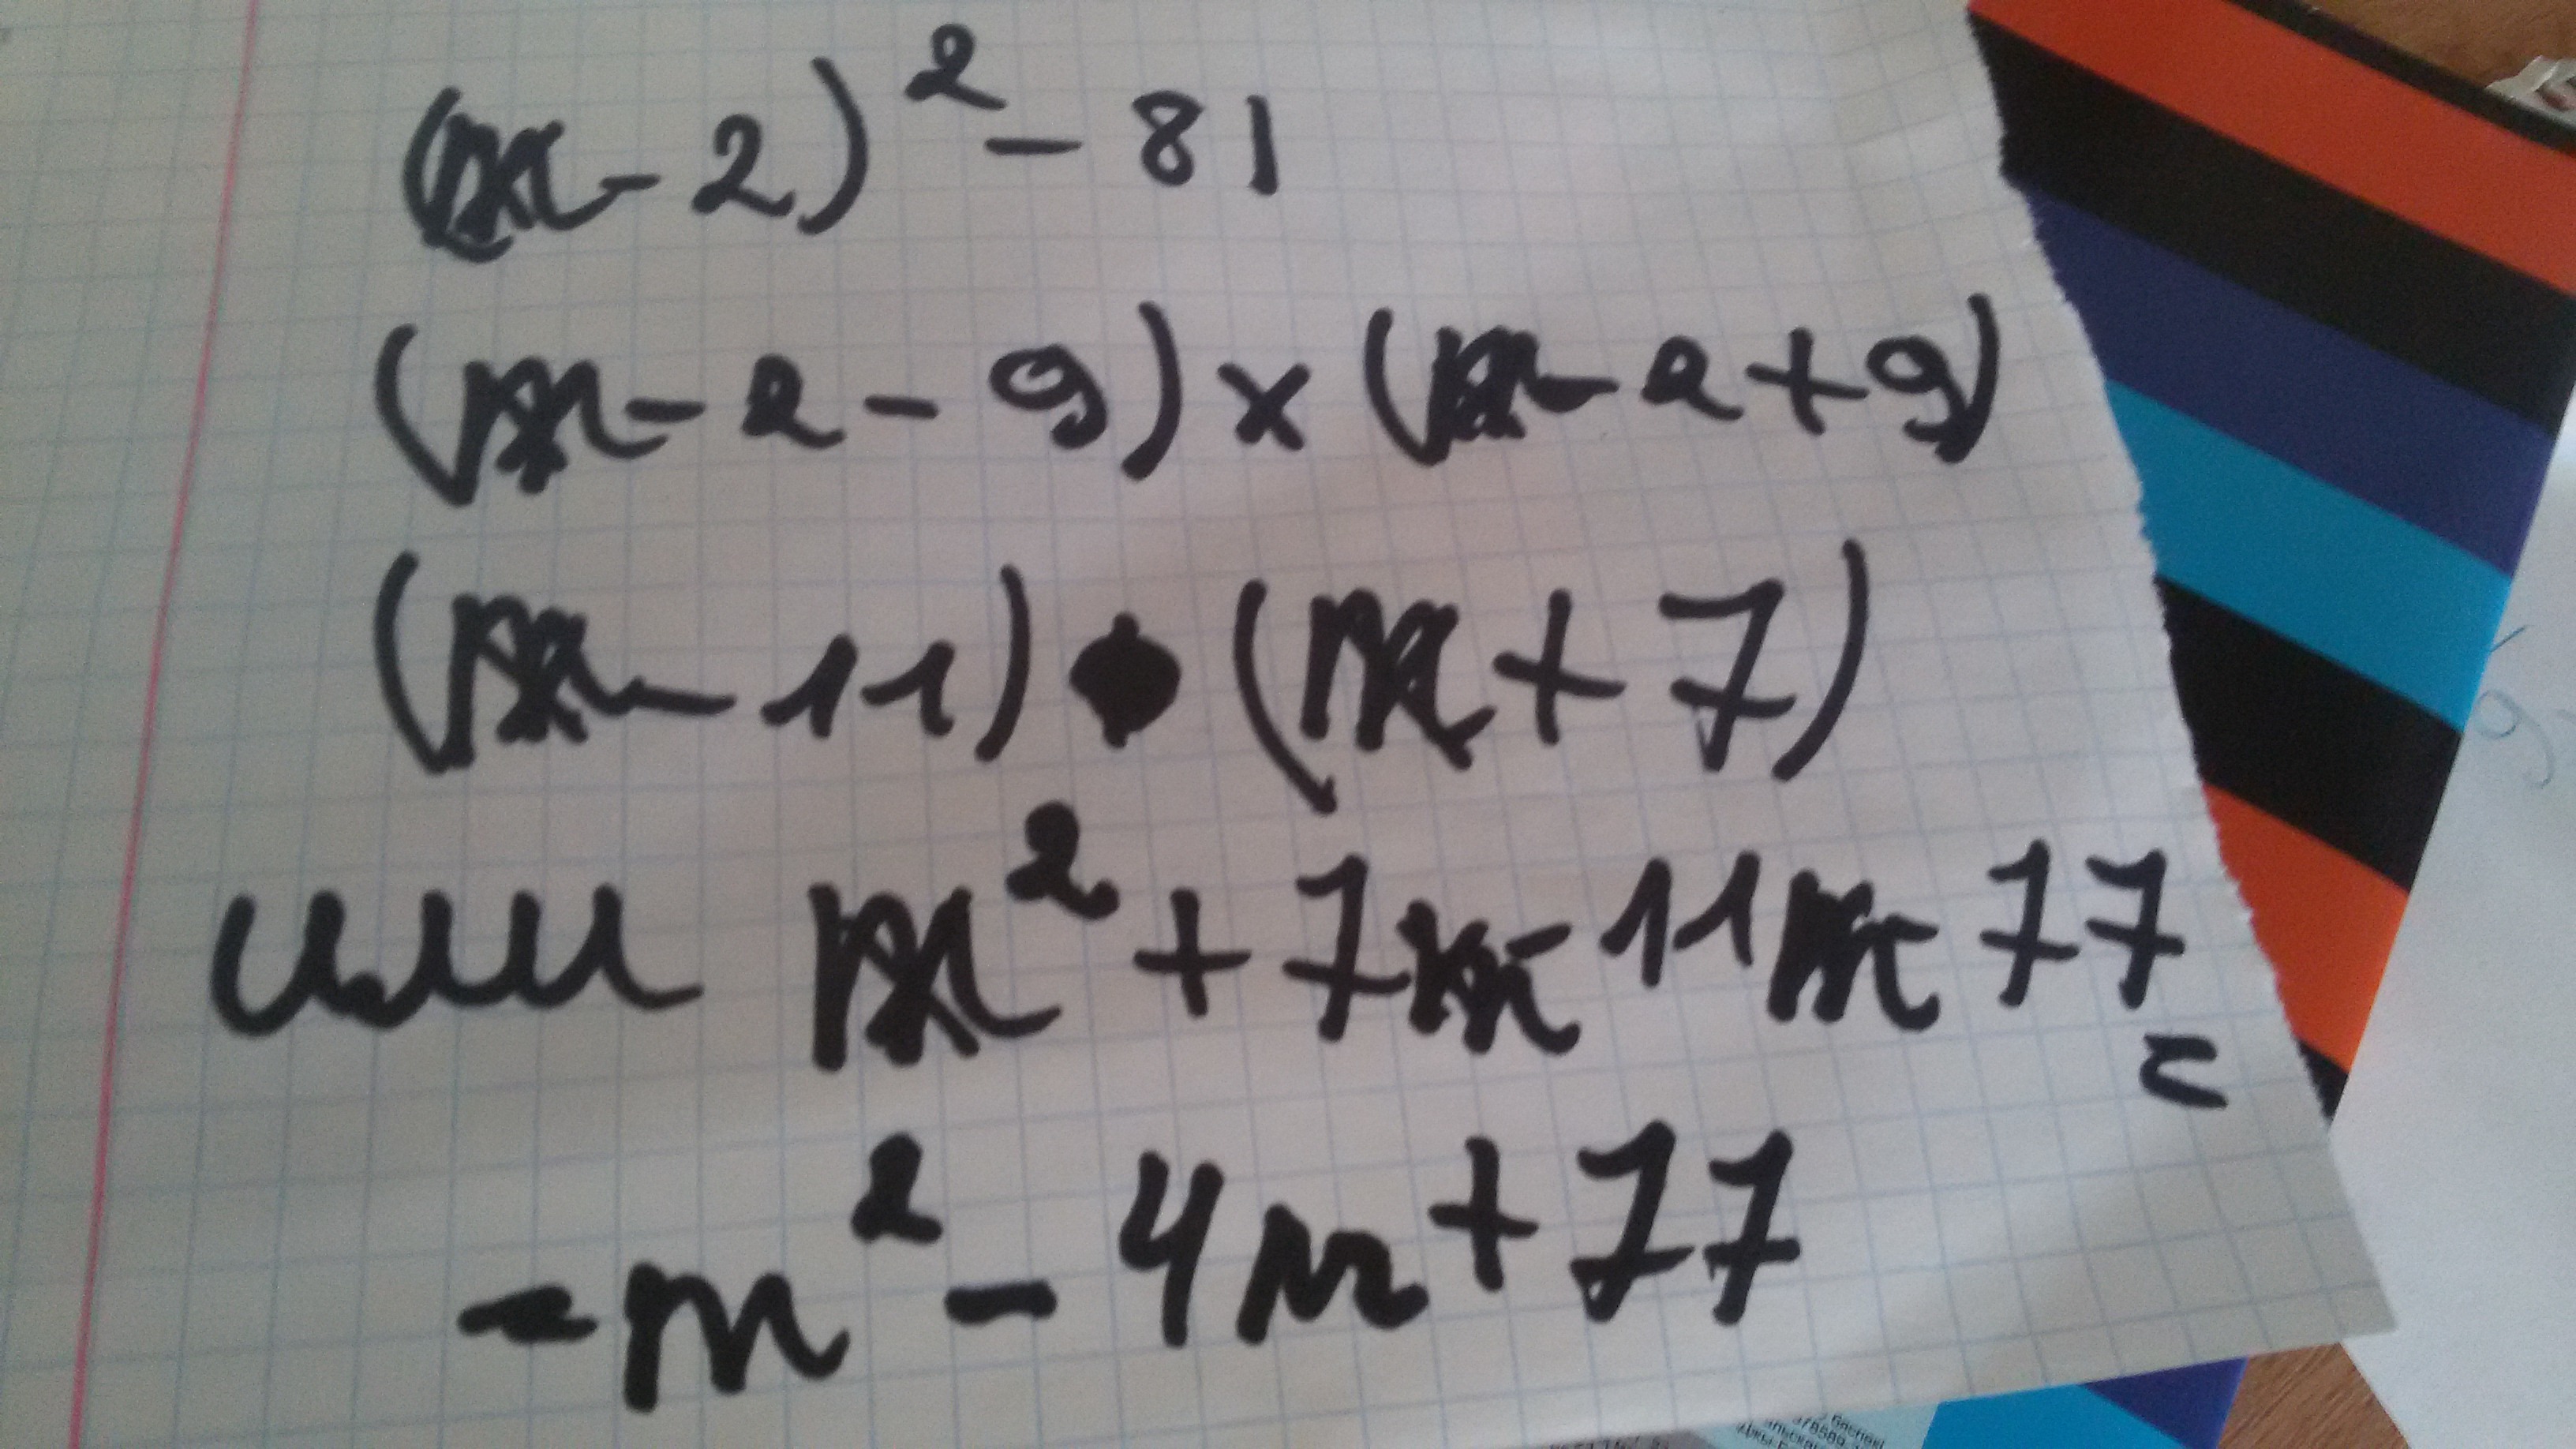 (m-2)²-81
(m-2-9)×(m-2+9)
(m-11)·(m+7)
или m²+7m-11m-77
=
=m²-4m+77